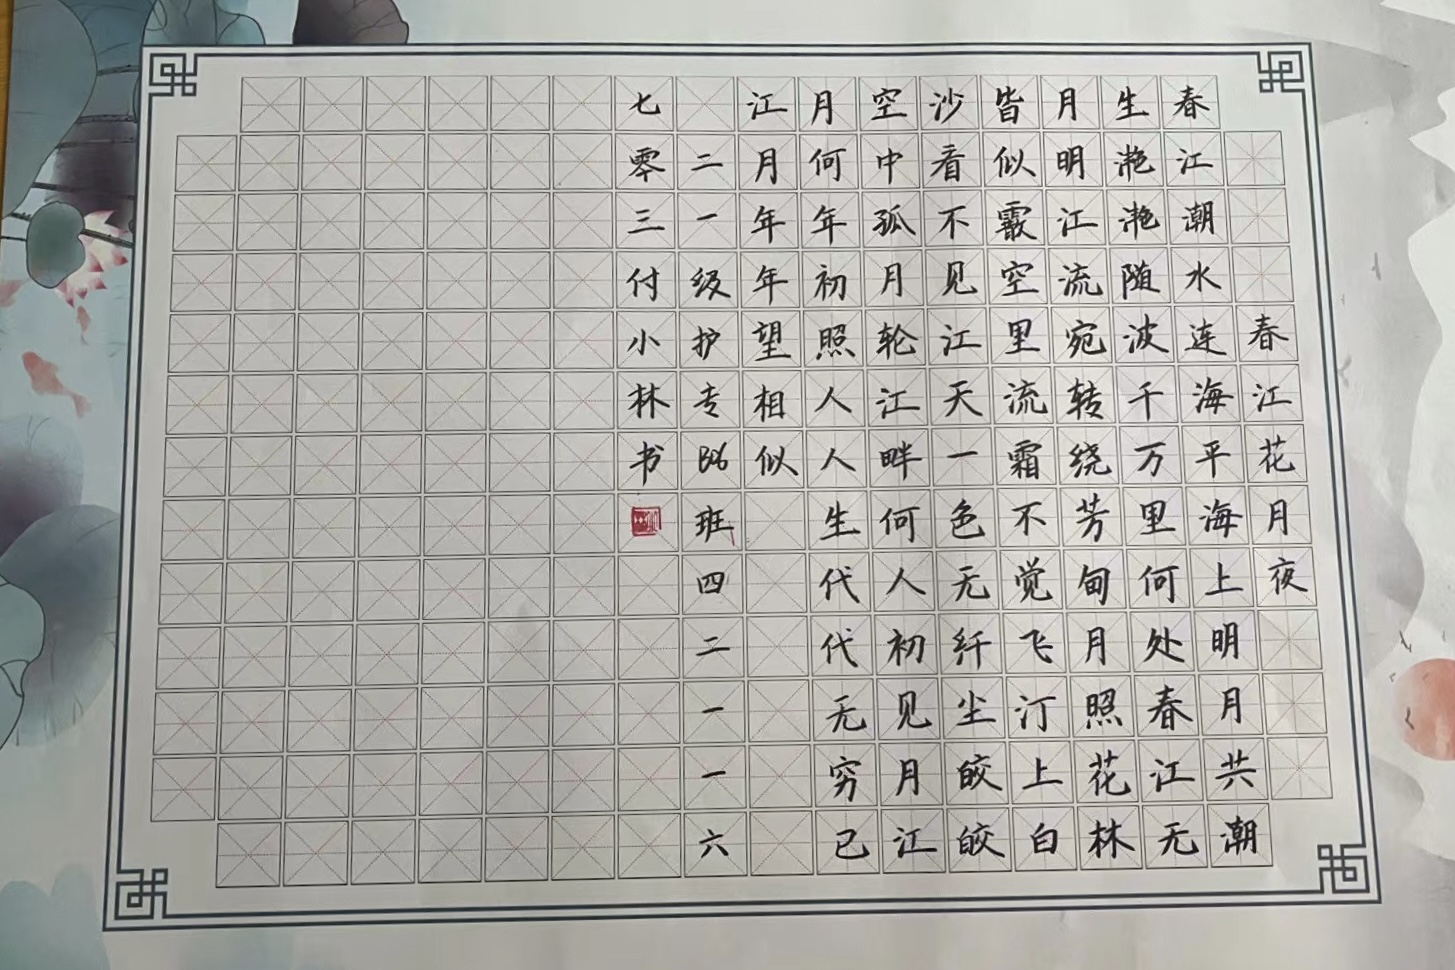 春江花月夜
春江潮水连海平海上明月共潮
生滟滟随波千万里何处春江无
月明江流宛转绕芳甸月照花林
皆似霰空里流霜不觉飞汀上白
沙看不见江天一色无纤尘皎皎
空中孤月轮江畔何人初见月江
月何年初照人人生代代无穷已
江月年年望相似
二一级护专班四二一一六
七零三付小林书